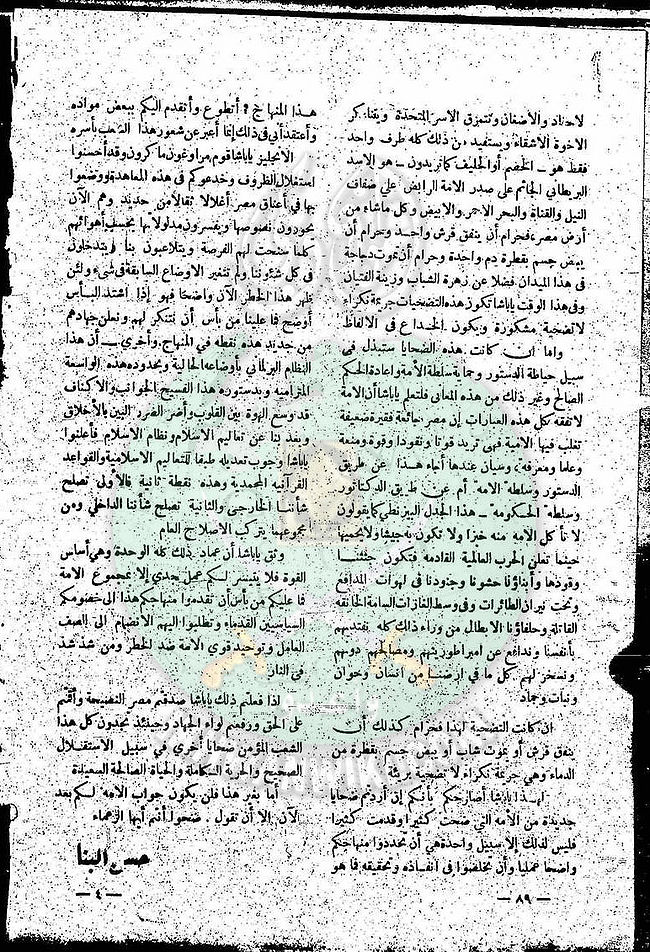 لاحقاد والأضغان وتتمزق الاسر المتحدة ويتناكر
الاخوة الأشقاء ويستفيد من ذلك كله طرف واحد
فقط هو – الخصم أو الحليف كما تريدون – هو الاسد
البريطاني الجاثم على صدر الامة الرابض على ضفاف
النيل والقناة والبحر الاحمر والابيض وكل ماشاء من
أرض مصر، فحرام أن ينفق قرش واحد وحرام أن
يبض جسم بقطرة دم واحدة وحرام أن تموت دجاجة
في هذا الميدان فضلا عن زهرة الشباب وزينة الفتيان
وفي هذا الوقت ياباشا تكون هذه التضحيات جريمة نكراء
لا تضحية مشكورة ويكون الخداع في الالفاظ
واما ان كانت هذه الضحايا ستبذل في
سبيل حياطة الدستور وحماية سلطة الأمة واعادة الحكم
الصالح وغير ذلك من هذه المعاني فلتعلم ياباشا أن الامة
لا تفقه كل هذه العبارات إن مصر جائعة فقيرة ضعيفة
تغلب فيها الامية فهى تريد قوتا ونقودا وقوة ومنعة
وعلما ومعرفة، وسيان عندها أجاء هذا عن طريق
الدستور وسلطة "الامه" أم عن طريق الدكتاتور
وسلطة "الحكومة" – هذا الجدل البيزنطي كما يقولون
لا تأكل الامه منه خبزا ولا تكون به جيشا ولا يحميها
حينما تعلن الحرب العالمية القادمه فتكون جثثنا
وقودها وأبناؤنا حشونا وجنودنا في لهوات المدافع
وتحت نيران الطائرات وفي وسط الغازات السامة الخانقه
القاتلة وحلفاؤنا الابطال من وراء ذلك كله نفتديهم
بأنفسنا وندافع عن امبراطوريتهم ومصالحهم دونهم
ونسخر لهم كل ما في ارضنا من انسان وحيوان
ونبات وجماد
ان كانت التضحية لهذا فحرام كذلك أن
ينفق قرش أو يموت شاب أو يبض جسم بقطرة من
الدماء وهي جريمة نكراء لا تضحية بريئة
لهذا ياباشا أصارحكم بأنكم إن أردتم ضحايا
جديدة من الأمه التي ضحت كثيرا وقدمت كثيرا
فليس لذلك إلا سبيل واحدة هي أن تحددوا منهاجكم
واضحا عمليا وأن تخلصوا في انفاذه وتحقيقه فما هو
— ٨٩ —
هذا المنهاج؟ أتطوع وأتقدم اليكم ببعض مواده
وأعتقد أني في ذلك إنما أعبر عن شعور هذا الشعب بأسره
الانجليز ياباشا قوم مراوغون ماكرون وقد أحسنوا
استغلال الظروف وخدعوكم في هذه المعاهدة ووضعوا
بها في أعناق مصر أغلالا ثقالا من حديد وهم الآن
يحورون نصوصها ويفسرون مدلولاتها بحسب أهوائهم
كلما سنحت لهم الفرصة ويتلاعبون بنا ويتدخلون
في كل شئوننا ولم تتغير الاوضاع السابقة في شيء ولئن
ظهر هذا الخطر الآن واضحا فهو إذا اشتد البأس
أوضح فما علينا من بأس أن نتنكر لهم ونعلن جهادهم
من جديد هذه نقطه في المنهاج. وأخرى – أن هذا
النظام البرلماني بأوضاعه الحالية وبحدوده هذه الواسعة
المتراميه وبدستوره هذا الفسيح الجوانب والاكناف
قد وسع الهوة بين القلوب وأضر الضرر البين بالأخلاق
وبعد بنا عن تعاليم الاسلام ونظام الاسلام فأعلنوا
ياباشا وجوب تعديله طبقا للتعاليم الاسلامية والقواعد
القرآنيه المحمدية وهذه نقطة ثانية فالأولى تصلح
شأننا الخارجي والثانية تصلح شأننا الداخلي ومن
مجموعهما يتركب الاصلاح العام
وثق ياباشا أن عماد ذلك كله الوحدة وهي أساس
القوة فلا يتيسر لكم عمل جدي إلا بمجموع الامة
فما عليكم من بأس أن تقدموا منهاجكم هذا الى خصومكم
السياسيين القدماء وتطلبوا اليهم الانضمام الى الصف
العامل وتوحيد قوى الامة ضد الخطر ومن شذ شذ
في النار
اذا فعلتم ذلك ياباشا صدقتم مصر النصيحة وأقمتم
على الحق ورفعتم لواء الجهاد وحينئذ تجدون كل هذا
الشعب المؤمن ضحايا أخرى في سبيل الاستقلال
الصحيح والحرية المتكاملة والحياة الصالحة السعيدة
أما بغير هذا فلن يكون جواب الأمه لكم بعد
الآن إلا أن تقول. ضحوا أنتم أيها الزعماء
حسن البنا
— ٤ —